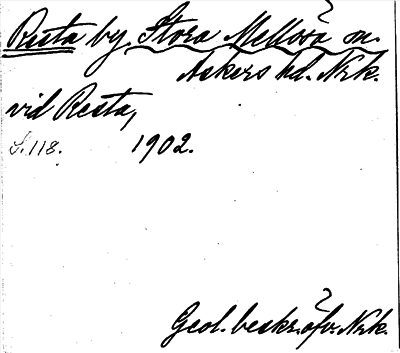 Resta by, Stora Mellösa sn.
Askers hd. Nrk.
vid Resta,
S. 118. 1902.
Geol. beskr. öfv. Nrk.